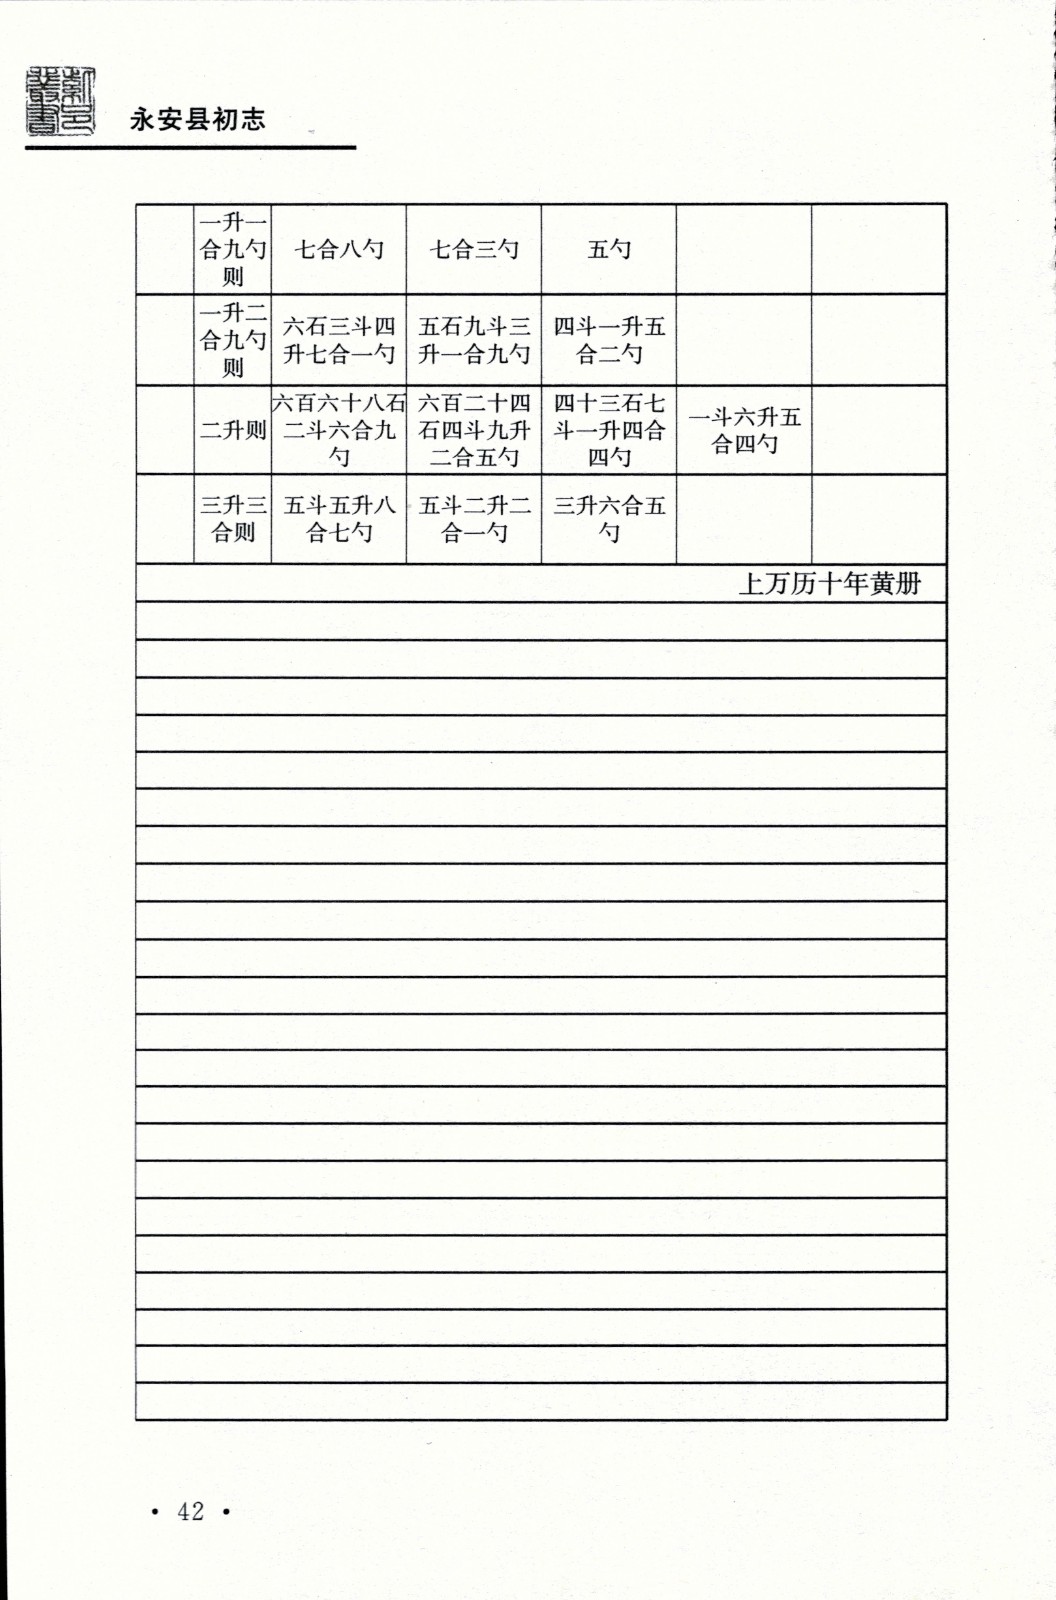 紫邑
叢書
永安县初志
一升一
合九勺
则
七合八勺
七合三勺
五勺
一升二
合九勺
则
六石三斗四
升七合一勺
五石九斗三
升一合九勺
四斗一升五
合二勺
二升则
六百六十八石
二斗六合九
勺
六百二十四
石四斗九升
二合五勺
四十三石七
斗一升四合
四勺
一斗六升五
合四勺
三升三
合则
五斗五升八
合七勺
五斗二升二
合一勺
三升六合五
勺
上万历十年黄册
· 42 ·